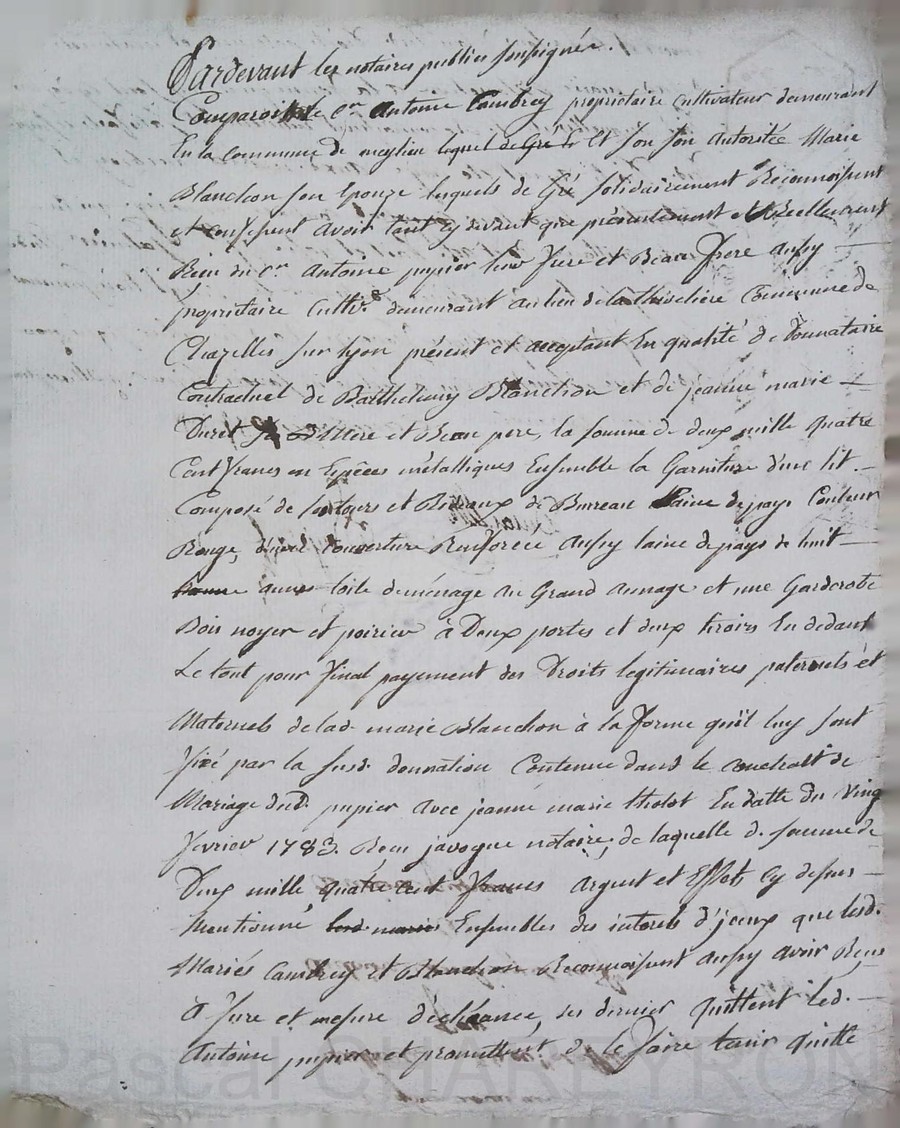 Pardevant les notaires publics soussignés.
Comparoit le Cen Antoine Cambrey propriétaire cultivateur demeurant
En la Commune de meylieu lequel de Gré Et son son Autoritée Marie
Blanchon son Epouze lesquels de Gré solidairement Reconnoissent
et confessent avoir tant cy devant que présentement et Réellement
Reçu du Cen Antoine pupier leur frere et Beau frere aussy —
propriétaire Cultivr demeurant au lieu de la Commune de
Chazelles sur lyon présent et acceptant En qualité de Donnataire
Contractuel de Barthelemy Blanchon et de jeanne marie —
Duret Mere et Beau pere, la somme de deux mille quatre
Cent francs en Espèces métalliques Ensemble la Garniture d'un lit. —
Composé de et Rideaux de Bureau laine de pays Couleur
Rouge, d'une couverture Renforcée aussy laine de pays de huit —
aunes toile de ménage au Grand aunage et une Garderobe
Bois noyer et poirier à Deux portes et deux tiroirs En dedant
Le tout pour final payement des Droits legitimaires paternels et
Maternels de lad. marie Blanchon à la forme qu'il luy sont
fixé par la susd. donnation Contenue dans le contrat de
Mariage dud. pupier avec jeanne marie tholot En datte du Vingt
fevrier 1783. Reçu javogue notaire, de laquelle d. somme de
Deux mille quatre cent francs argent et Effets cy dessus —
Mentionné Ensembles des interets d'jceux que lesd.
Mariés Cambrey et Blanchon Reconnoissent aussy avoir Reçus
A fure et mesure d'échéance, ses dernier quittent led. —
Antoine pupier et promettent de le faire tenir quitte
Pascal CHAREYRON